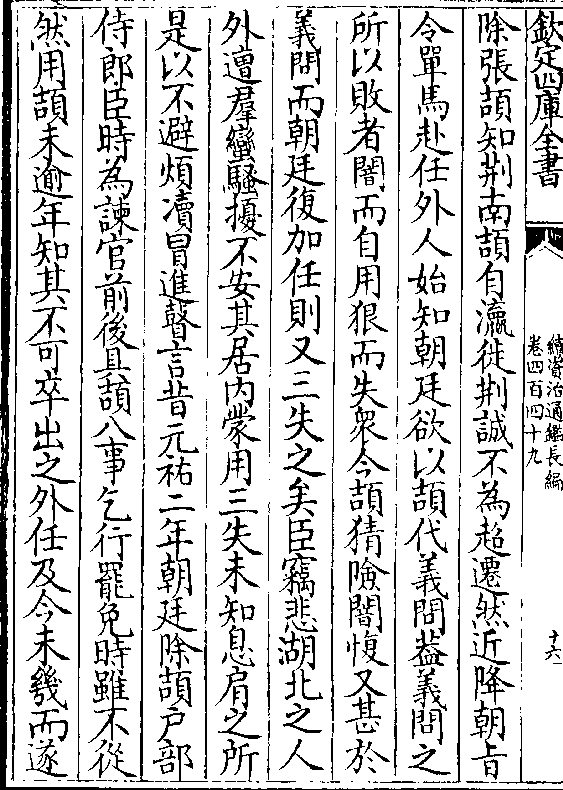 欽定四庫全書
續資治通鑑長編
卷四百四十九
十六
除張頡知荆南頡自瀛徙荆誠不為超遷然近降朝旨
令單馬赴任外人始知朝廷欲以頡代義問葢義問之
所以敗者闇而自用狠而失衆今頡猜險闇愎又甚於
義問而朝廷復加任則又三失之矣臣竊悲湖北之人
外遭羣蠻騷擾不安其居内蒙用三失未知息肩之所
是以不避煩凟冒進瞽言昔元祐二年朝廷除頡户部
侍郎臣時為諫官前後具頡八事乞行罷免時雖不從
然用頡未逾年知其不可卒出之外任及今未幾而遂